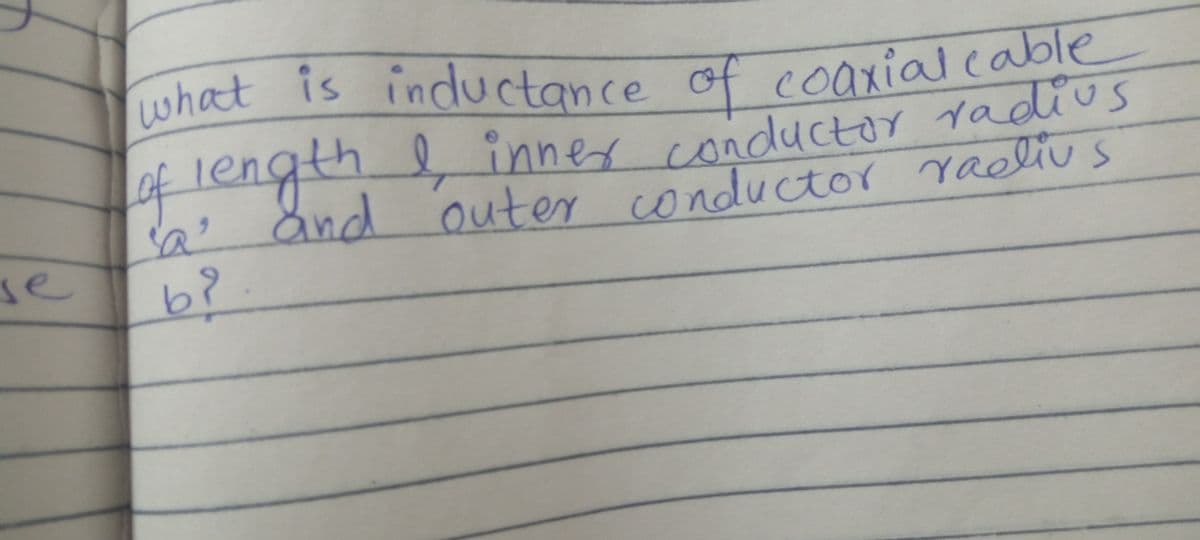 what is inductance of coaxial cable
of length l, inner conductor radius
'a' and outer conductor radius
b?
se